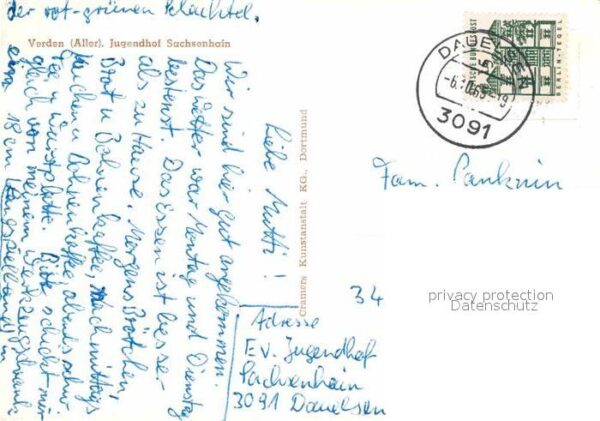 Liebe Mutti!
Wir sind hier gut angekommen.
Das Wetter war Montag und Dienstag
bestens. Das Essen ist besser
als zu Hause. Morgens Brötchen,
Brot u. Bohnenkaffee, nachmittags
Kuchen u. Bohnenkaffee abends
Tee u. Wurstplatte. Bitte schickt mir
gleich von meinem Werkzeugschrank
eine 18 cm
der rot-grünen Schachtel.
Verden (Aller). Jugendhof Sachsenhain
Cramers Kunstanstalt KG., Dortmund
DEUTSCHE BUNDESPOST
BERLIN-TEGEL
3091
Fam. Panknin
34
privacy protection
Datenschutz
Adresse
E.V. Jugendhof
Sachsenhain
3091 Dauelsen